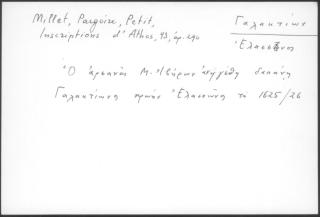 Millet, Pargoire, Petit,
Inscriptions d'Athos, 93, ἀρ. 290
Γαλακτίων
Ἐλασσῶνος
Ὁ ἀρσανᾶς Μ. Ἰβήρων ἀνηγέρθη δαπάνῃ
Γαλακτίωνος πρώην Ἐλασσῶνος τὸ 1625/26